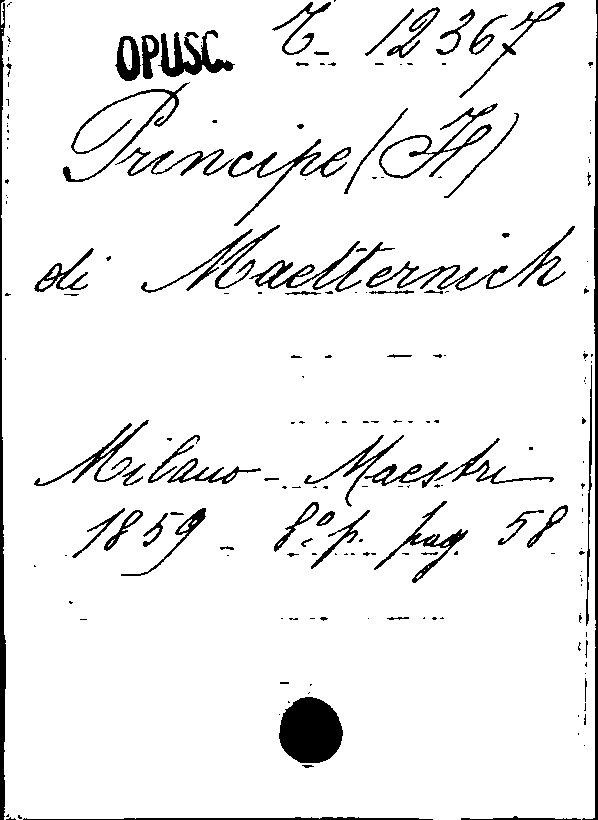 OPUSC. C- 12367
Principe (Il)
di Maetternich
Milano - Maestri
1859 - 8º p. pag. 58